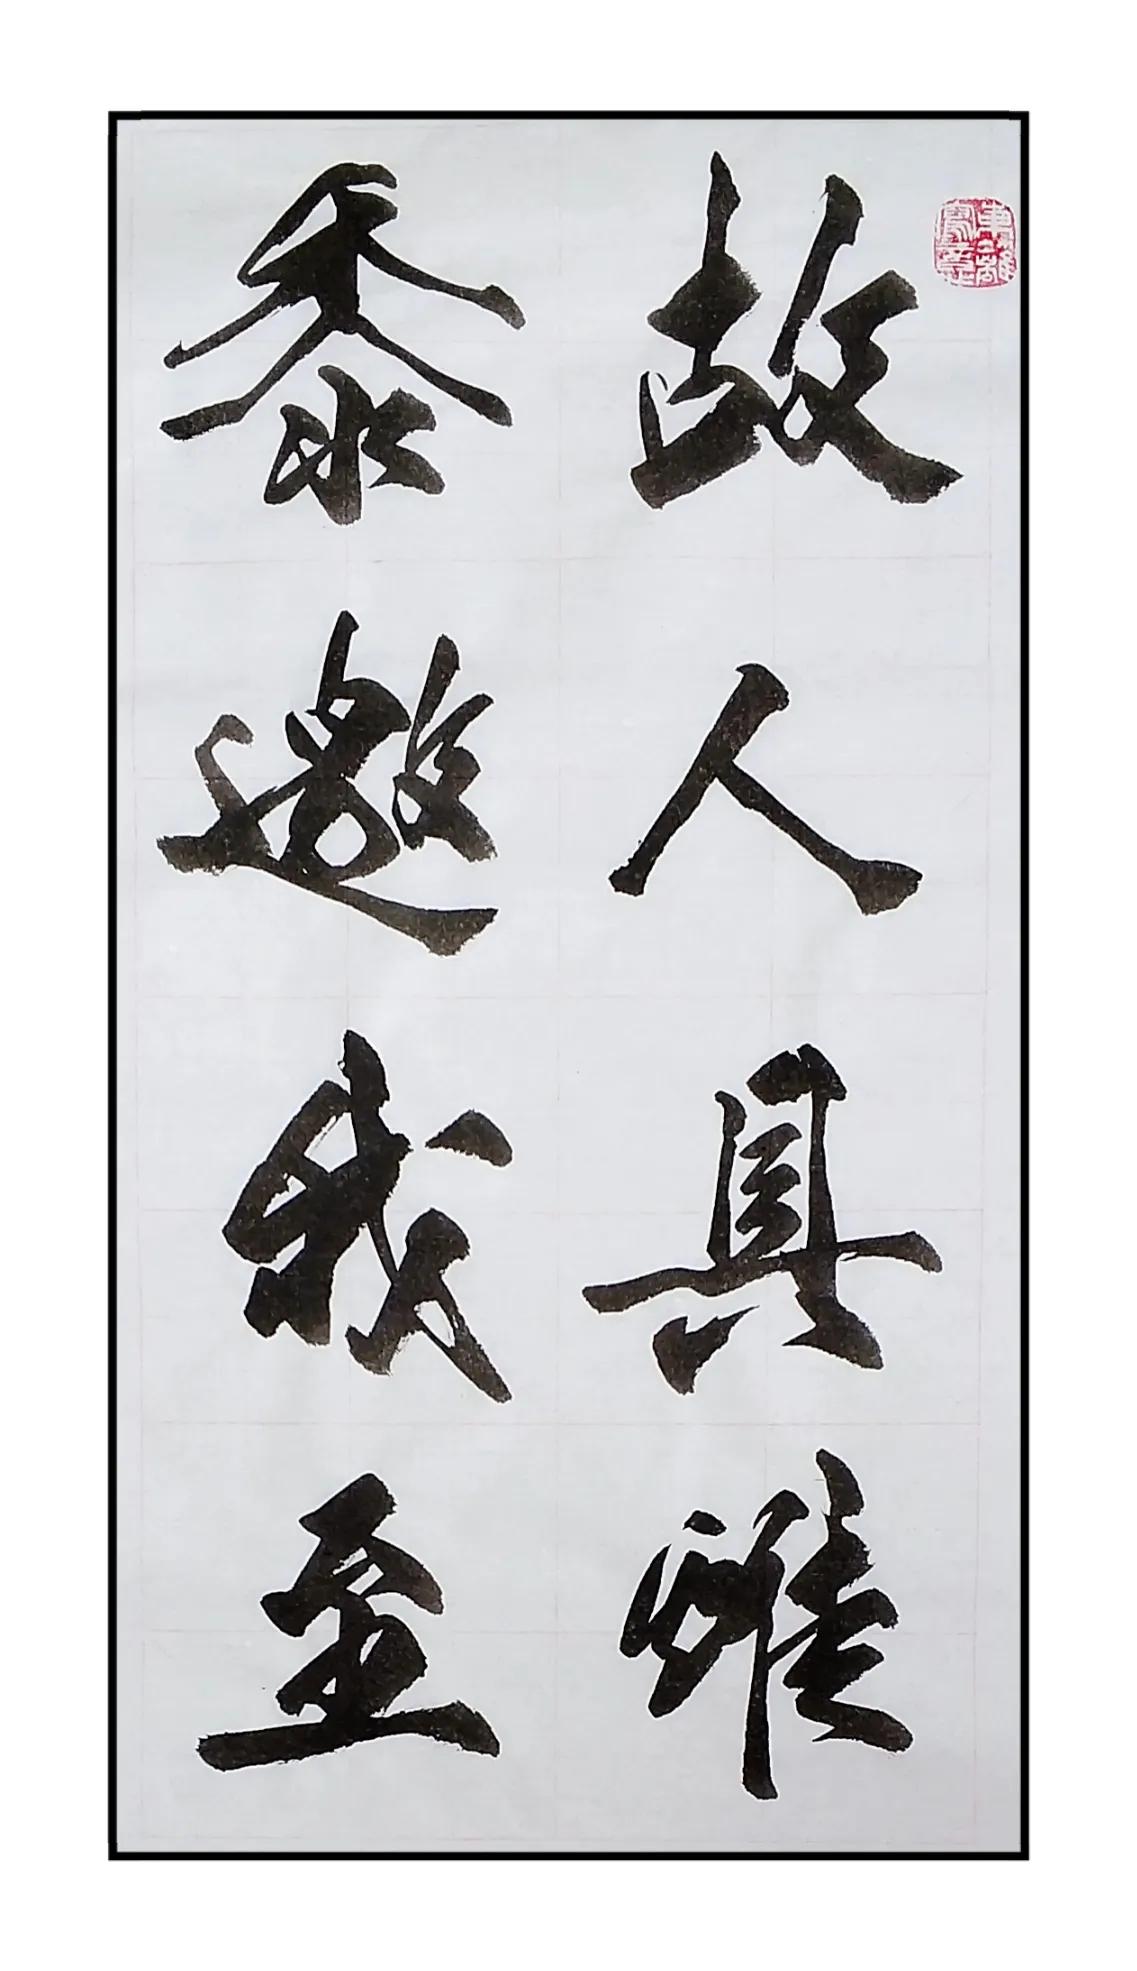 故人具雞
黍邀我至